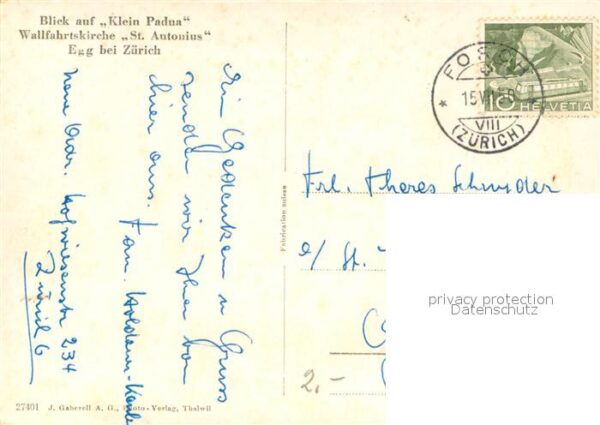 Blick auf „Klein Padua“
Wallfahrtskirche „St. Antonius“
Egg bei Zürich
Ein Gedenken u Gruss
senden wir Ihnen von
hier aus. Fam.
neue Adr. Hofwiesenstr 234
Zürich 6
Fabrication suisse
FORCH
15.VII
VIII
(ZÜRICH)
10 HELVETIA
Frl. Theres Schnyder
c/ St.
privacy protection
Datenschutz
2,-
27401 J. Gaberell A. G., Photo-Verlag, Thalwil